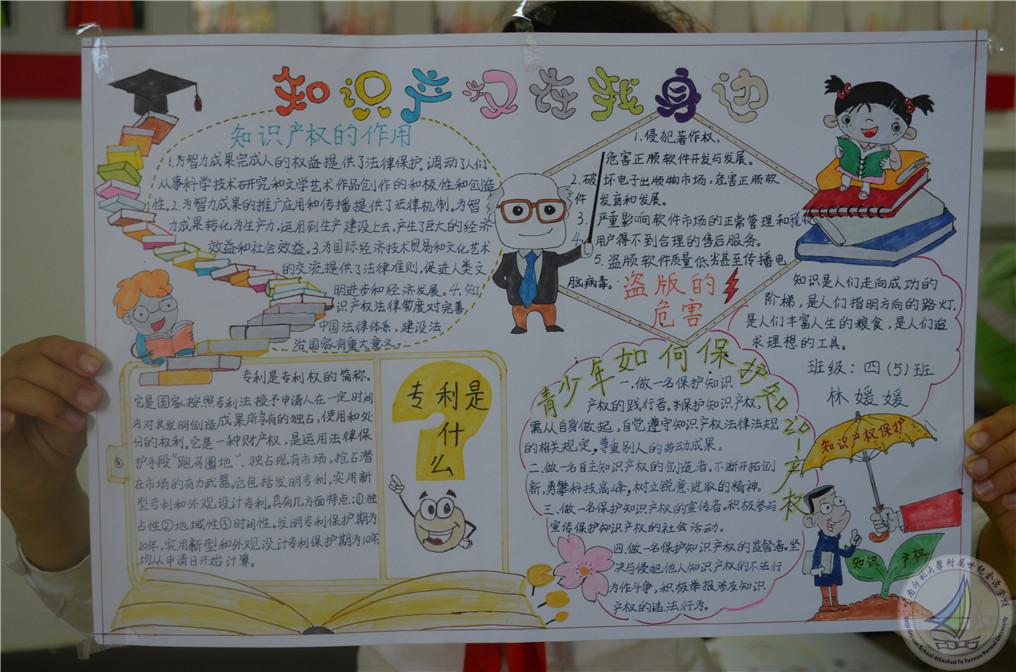 知识产权在我身边
知识产权的作用
1.为智力成果完成人的权益提供了法律保护,调动了人们
从事科学技术研究和文学艺术作品创作的积极性和创造
性。2.为智力成果的推广应用和传播提供了法律机制,为智
力成果转化为生产力,运用到生产建设上去,产生巨大的经济
效益和社会效益。3.为国际经济技术贸易和文化艺术
的交流提供了法律准则,促进人类文
明进步和经济发展。4.知
识产权法律制度对完善
中国法律体系,建设法
治国家有重大意义。
1.侵犯著作权,
危害正顺软件开发与发展。
2.破坏电子出顺物市场,危害正顺软
件 发育和发展。
3.严重影响软件市场的正常管理和税收
4.用户得不到合理的售后服务。
5.盗版软件质量低劣甚至传播电
脑病毒。
盗版的
危害
知识是人们走向成功的
阶梯,是人们指明方向的路灯.
是人们丰富人生的粮食,是人们追
求理想的工具。
班级:四(5)班
林媛媛
专利是专利权的简称。
它是国家按照专利法授予申请人在一定时间
内对其发明创造成果所享有的独占,使用和处
分的权利。它是一种财产权,是运用法律保
护手段“跑马圈地”、独占现有市场,抢占潜
在市场的有力武器。它包括发明专利,实用新
型专利和外观设计专利。具有几方面特点:①独
占性②地域性③时间性。发明专利保护期为
20年,实用新型和外观设计专利保护期为10年
均从申请日开始计算。
专利是
什
么
青少年如何保护知识产权
一.做一名保护知识
产权的践行者。保护知识产权,
需从自身做起,自觉遵守知识产权法律法规
的相关规定,尊重别人的劳动成果。
二.做一名自主知识产权的创造者。不断开拓创
新,勇攀科技高峰,树立锐意进取的精神。
三.做一名保护知识产权的宣传者。积极参与
宣传保护知识产权的社会活动。
四.做一名保护知识产权的监督者。坚
决与侵犯他人知识产权的不法行
为作斗争,积极举报涉及知识
产权的违法行为。
知识产权保护
知识 产权